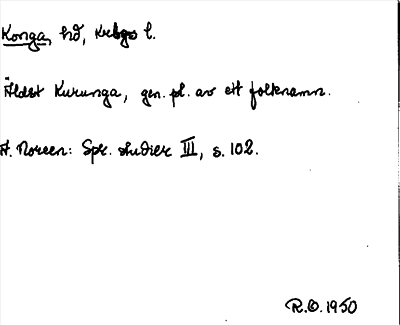 Konga, hd, Krbgs l.
Äldst Kurunga, gen. pl. av ett folknamn.
A. Noreen: Spr. studier III, s. 102.
R.O. 1950